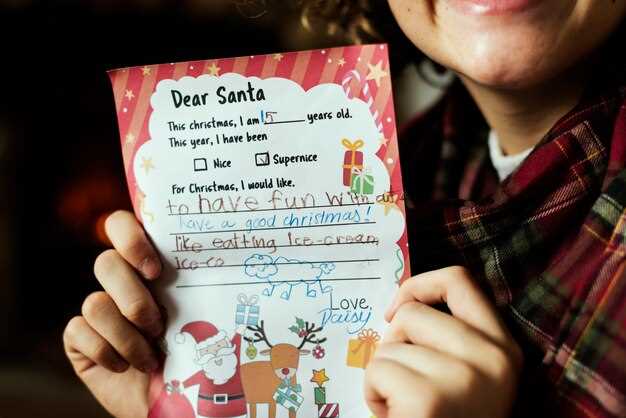 Dear Santa
This christmas, I am 15 years old.
This year, I have been
Nice Supernice
For Christmas, I would like.
to have fun with
have a good christmas!
like eatting Ice-cream,
ice-co
Love,
Daisy